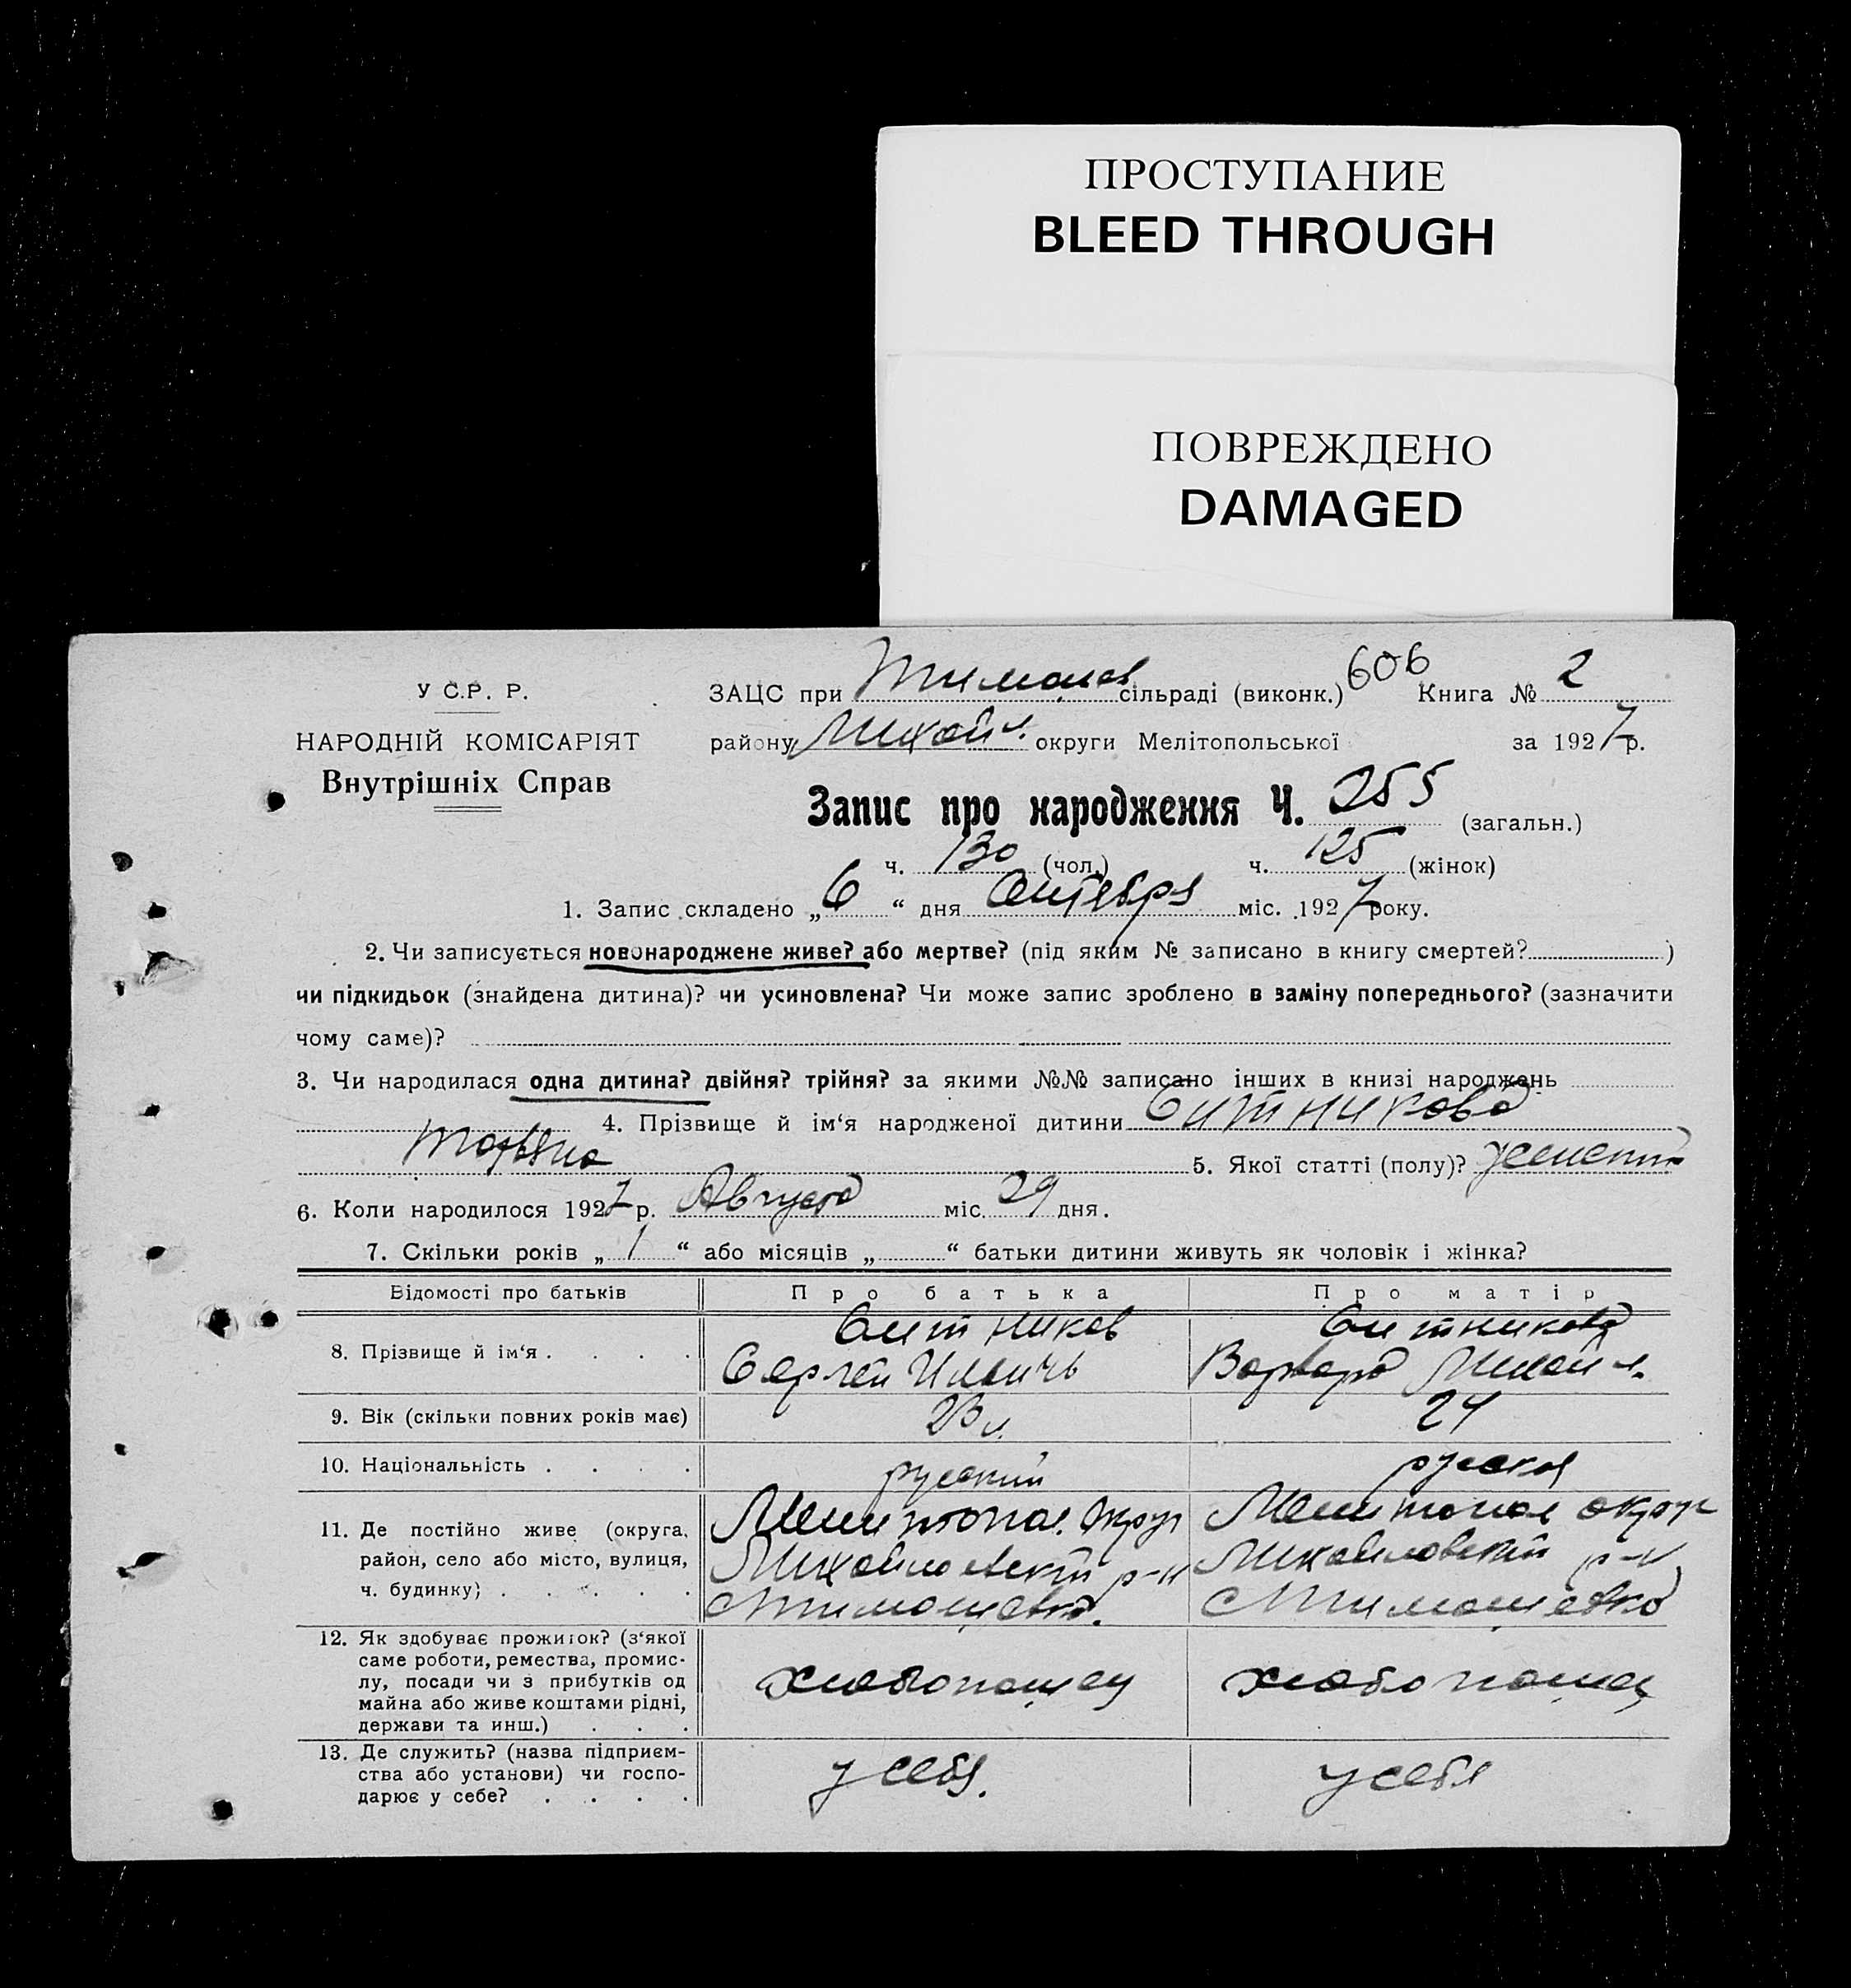 ПРОСТУПАНИЕ
BLEED THROUGH
ПОВРЕЖДЕНО
DAMAGED
У С.Р. Р.
НАРОДНІЙ КОМІСАРІЯТ
Внутрішніх Справ
ЗАЦС при Тимошев сільраді (виконк.) 606 Книга № 2
району Михайл. округи Мелітопольської за 1927 р.
Запис про народження Ч. 255 (загальн.)
ч. 130 (чол.) ч. 125 (жінок)
1. Запис складено „6“ дня Октября міс. 1927 року.
2. Чи записується новонароджене живе? або мертве? (під яким № записано в книгу смертей? )
чи підкидьок (знайдена дитина)? чи усиновлена? Чи може запис зроблено в заміну попереднього? (зазначити
чому саме)?
3. Чи народилася одна дитина? двійня? трійня? за якими №№ записано інших в книзі народжень
4. Прізвище й ім‘я народженої дитини Ситникова
Татьяна 5. Якої статті (полу)?
6. Коли народилося 1927 р. Августа міс. 29 дня.
7. Скільки років „1“ або місяців „ “ батьки дитини живуть як чоловік і жінка?
Відомості про батьків Про батька Про матір
8. Прізвище й ім‘я . . . . Ситников Сергей Ильичь Ситникова Варвара Михайл.
9. Вік (скільки повних років має) 23 л. 24
10. Національність . . . . русский русская
11. Де постійно живе (округа, Мелитопол. округ Мелитопол округ
район, село або місто, вулиця, Михайловский р-н Михайловский р-н
ч. будинку) . . . . . С Тимошевка. С Тимошевка
12. Як здобуває прожиток? (з‘якої
саме роботи, ремества, промис-
лу, посади чи з прибутків од
майна або живе коштами рідні,
держави та инш.) . . . хлебопашец хлебопашец
13. Де служить? (назва підприєм-
ства або установи) чи госпо-
дарює у себе? . . . . у себя. у себя